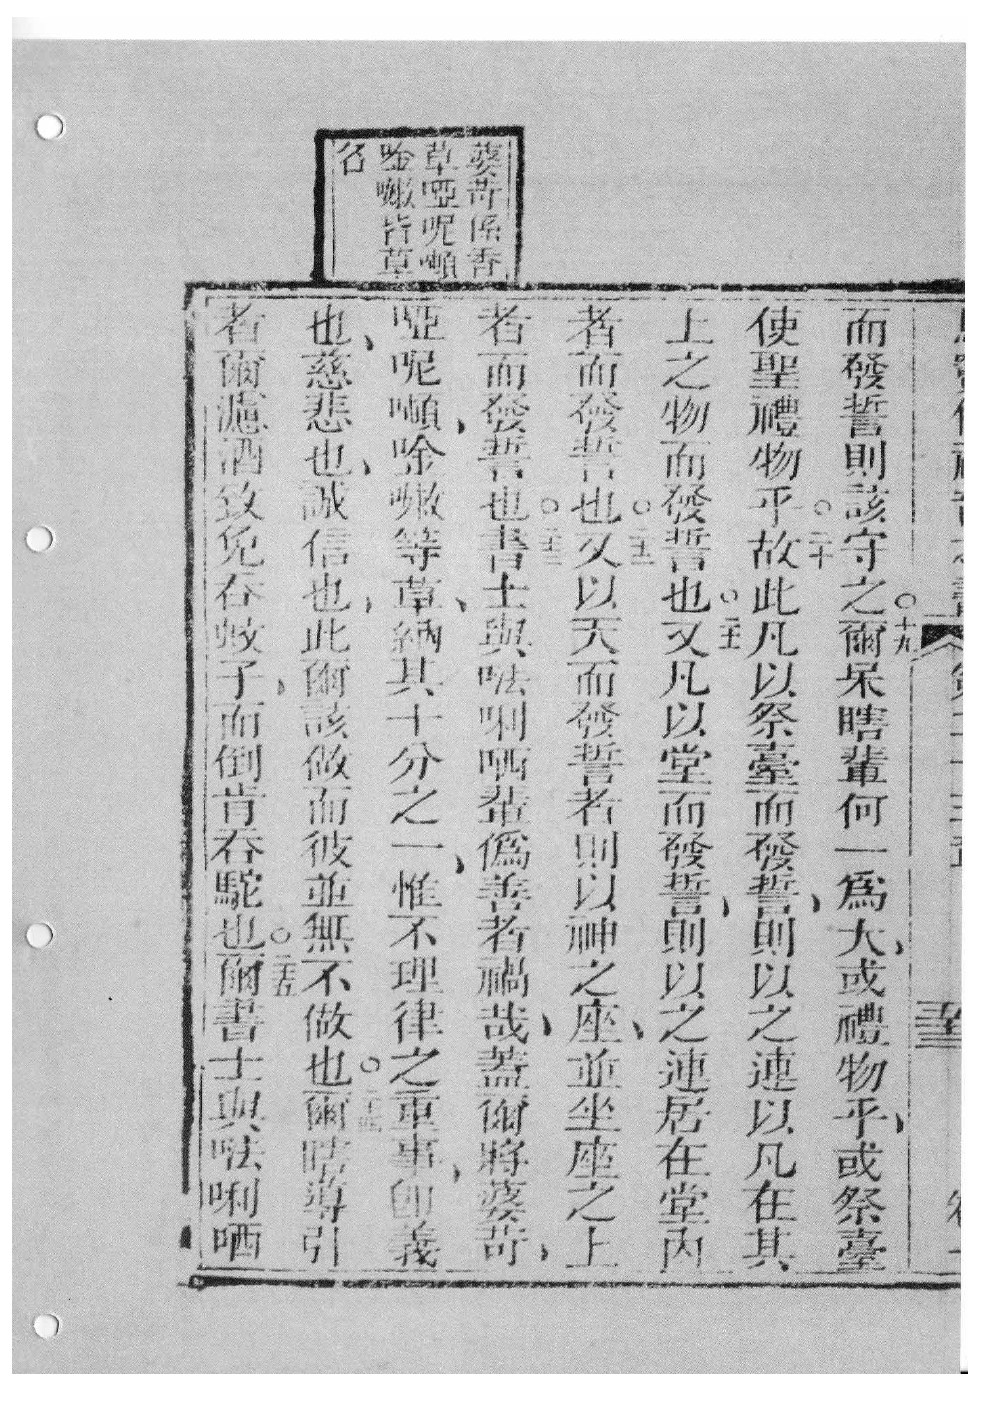 婆苛係香
草啞呢囇
唫嗽皆草
名
而發誓則該守之爾呆瞎輩何一爲大、或禮物乎、或祭臺
使聖禮物乎故此凡以祭臺而發誓、則以之連以凡在其
上之物而發誓也又凡以堂而發誓、則以之連居在堂內
者而發誓也又以天而發誓者則以神之座、並坐座之上
者而發誓也書士與呿唎哂輩僞善者禍哉、蓋爾將婆苛、
啞呢囇、唫嗽等草、納其十分之一、惟不理律之重事、卽義
也、慈悲也、誠信也、此爾該做而彼並無不做也爾瞎導引
者爾濾酒致免吞蚊子、而倒肯吞駝也爾書士與呿唎哂
○十九
○二十
○二十一
○二十二
○二十三
○二十四
○二十五